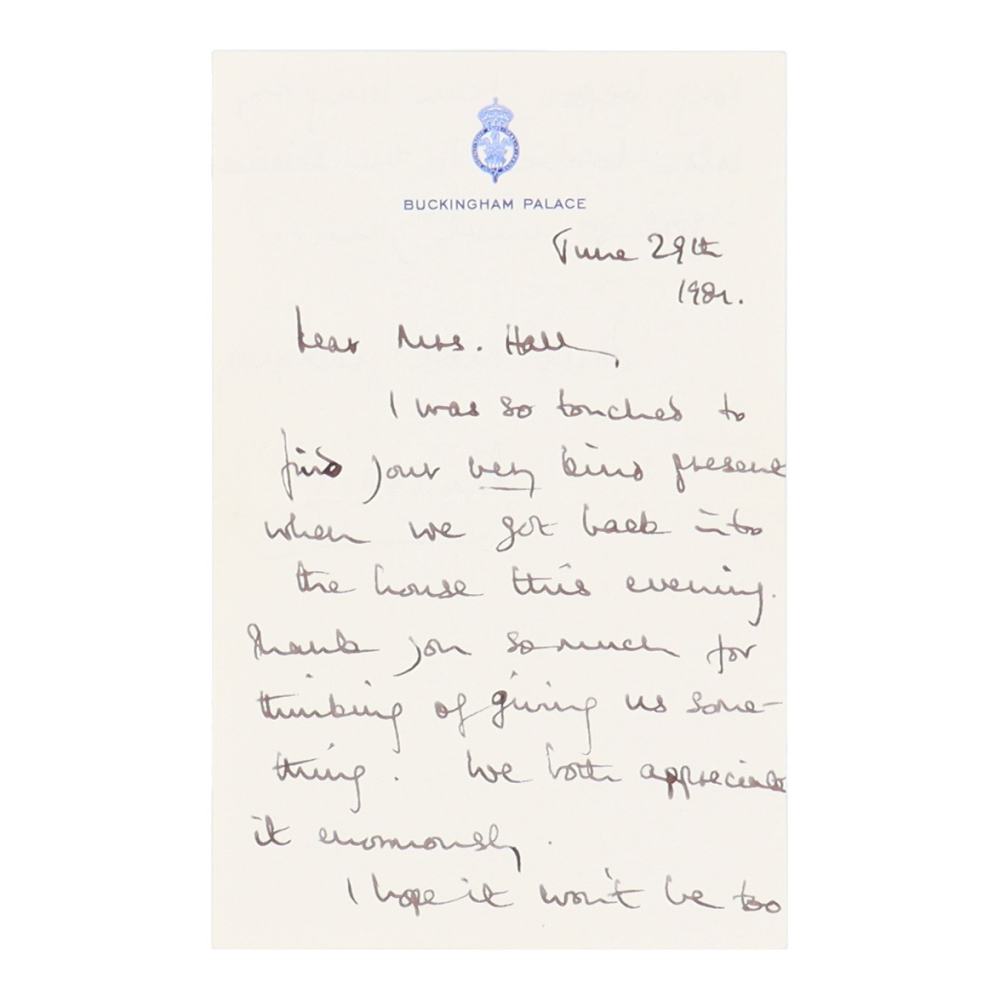 BUCKINGHAM PALACE
June 29th
1981.
Dear Mrs. Hall,
I was so touched to
find your very kind present
when we got back into
the house this evening.
Thank you so much for
thinking of giving us some-
thing. We both appreciate
it enormously.
I hope it won't be too